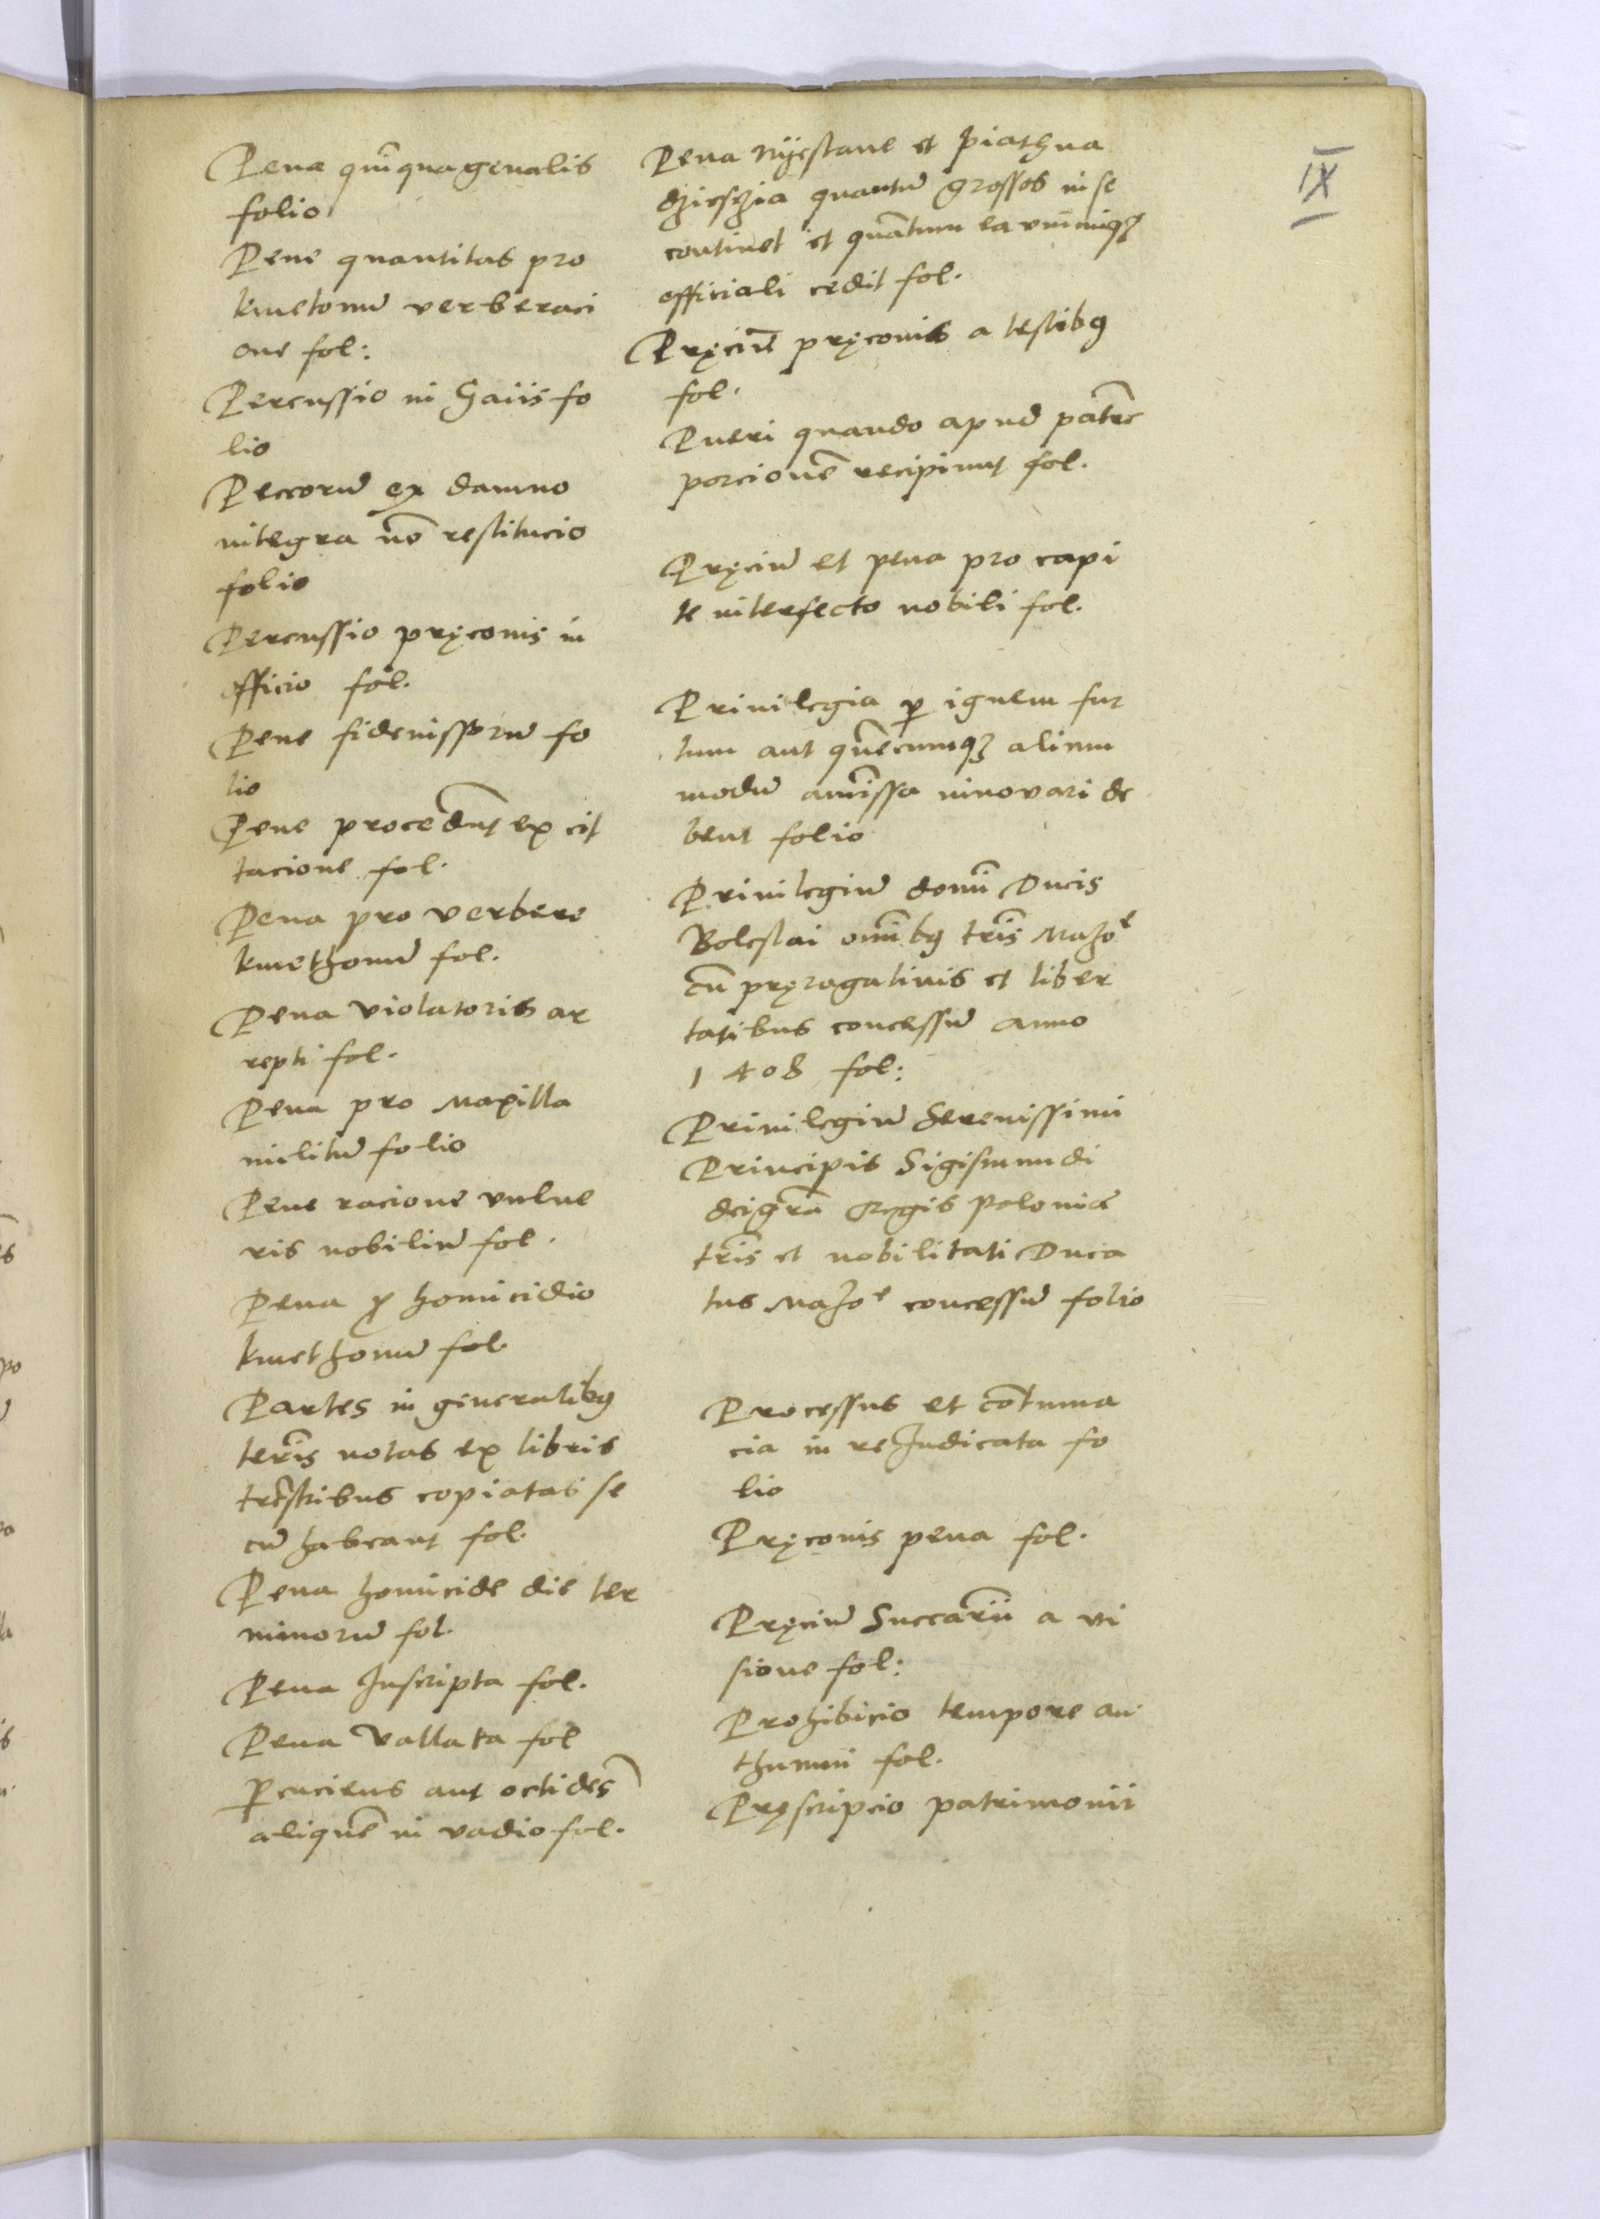 Pena quīquagenalis
folio
Pene quantitas pro
kmetonū verberaci
one fol:
Percussio in Gaiis fo
lio
Peccorū ex damno
integra nō restitucio
folio
Percussio pręconis in
officio fol.
Pene fideiussorū fo
lio
Pene procedūt ex cit
tacione fol.
Pena pro verbere
kmethonū fol.
Pena violatoris ar
repti fol.
Pena pro Maxilla
militū folio
Pene racione vulne
ris nobiliū fol.
Pena ꝓ homicidio
kmethonū fol.
Partes in generalibꝰ
termīs notas ex libris
trēstribus copiatas se
cū habeant fol.
Pena homicide die ter
minorū fol.
Pena Inscripta fol.
Pena Vallata fol
ꝑcuciens aut occidēs
aliquē in vadio fol.
IX
Pena Nyestane et piathna
dziesczia quantū grossos in se
continet et quātum ea vnicuiqꝫ
officiali cedit fol.
Pręciū pręconis a testibꝰ
fol.
Pueri quando apud patrē
porcionē recipiunt fol.
Pręciū et pena pro capi
te interfecto nobili fol.
Privilegia ꝑ ignem fur
tum aut quēcumqꝫ alium
modū amissa innovari de
bent folio
Privilegiū domī Ducis
Boleslai omībꝰ trīs Mazoᵉ
cū pręrogativis et liber
tatibus concessū anno
1408 fol:
Privilegiū Serenissimi
Principis Sigismundi
dei grā Regis Poloniæ
trīs et nobilitati Duca
tus Mazoᵉ concessū folio
Processus et cōtuma
cia in re Judicata fo
lio
Pręconis pena fol.
Pręciū Succarii a vi
sione fol:
Prohibicio tempore au
thumni fol.
Pręscripcio patrimonii